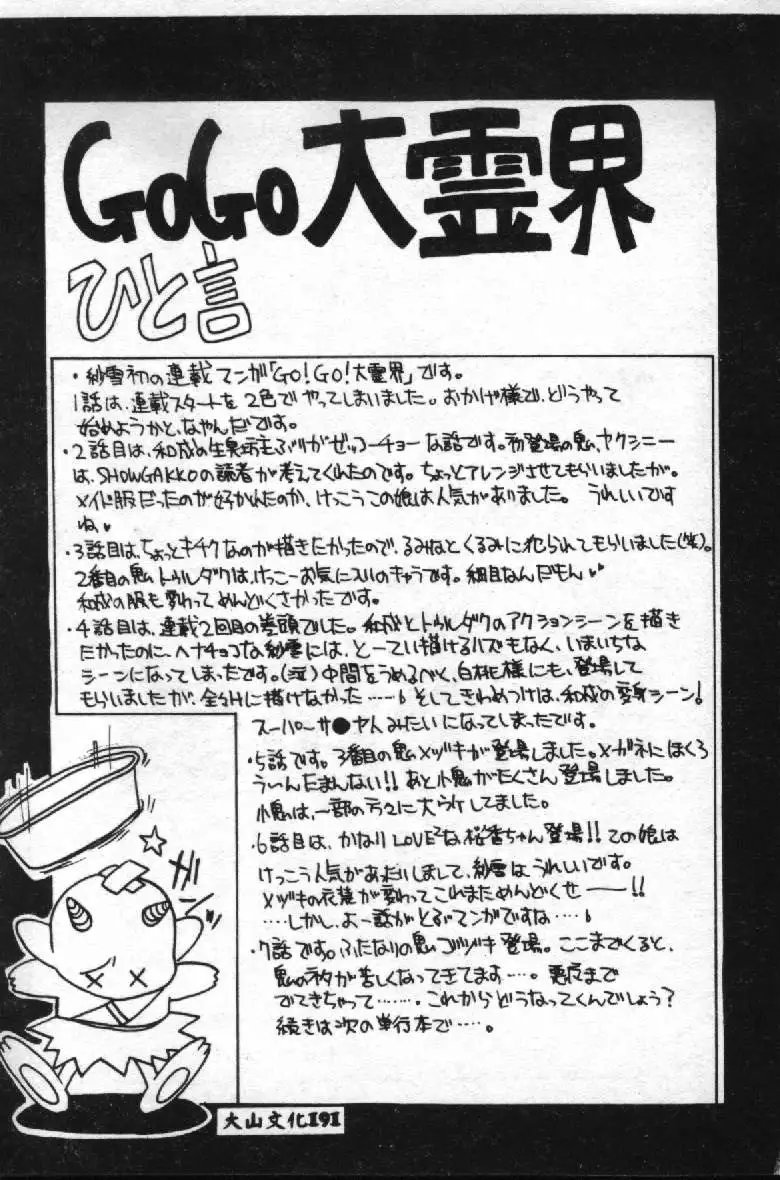 GOGO大霊界
ひと言
・紗雪初の連載マンガ「GO!GO!大霊界」です。
1話は、連載スタートを2色でやってしまいました。おかげ様で、どうやって
始めようかと、なやんだです。
・2話目は、和成の生臭坊主ぶりがゼッコーチョーな話です。初登場の鬼、ヤクシニー
は、SHOWGAKKOの読者が考えてくれたのです。ちょっとアレンジさせてもらいましたが。
メイド服だったのが好かれたのか、けっこうこの娘は人気がありました。うれしいです
ね♥
・3話目は、ちょっとキチクなのが描きたかったので、るみなとくるみに犯られてもらいました(笑)。
2番目の鬼トゥルダクは、けっこーお気に入りのキャラです。細目なんだもん♥
和成の服も変わってめんどくさかったです。
・4話目は、連載2回目の巻頭でした。和成とトゥルダクのアクションシーンを描き
たかったのに、ヘナチョコな紗雪には、とーてい描けるハズもなく、いまいちな
シーンになってしまったです。(泣)中間をうめるべく、白桃様にも、登場して
もらいましたが、全然Hに描けなかった……。そしてきわめつけは、和成の変身シーン!
スーパーサ●ヤ人みたいになってしまったです。
・5話です。3番目の鬼メヅキが登場しました。メガネにほくろ
ういんたまんない!!あと小鬼がたくさん登場しました。
小鬼は、一部の方々に大ウケしてました。
・6話目は、かなりLOVE²な、桜香ちゃん登場!!この娘は
けっこう人気があたいしまして、紗雪はうれしいです。
メヅキの衣装が変わってこれまためんどくせ――!!
……しかし、よー話がとぶマンガですな……。
・7話です。ふたなりの鬼ゴヅキ登場。ここまでくると、
鬼のネタが苦しくなってきてます…。悪役まで
でてきちゃって……。これからどうなってくんでしょう?
続きは次の単行本で…。
大山文化191